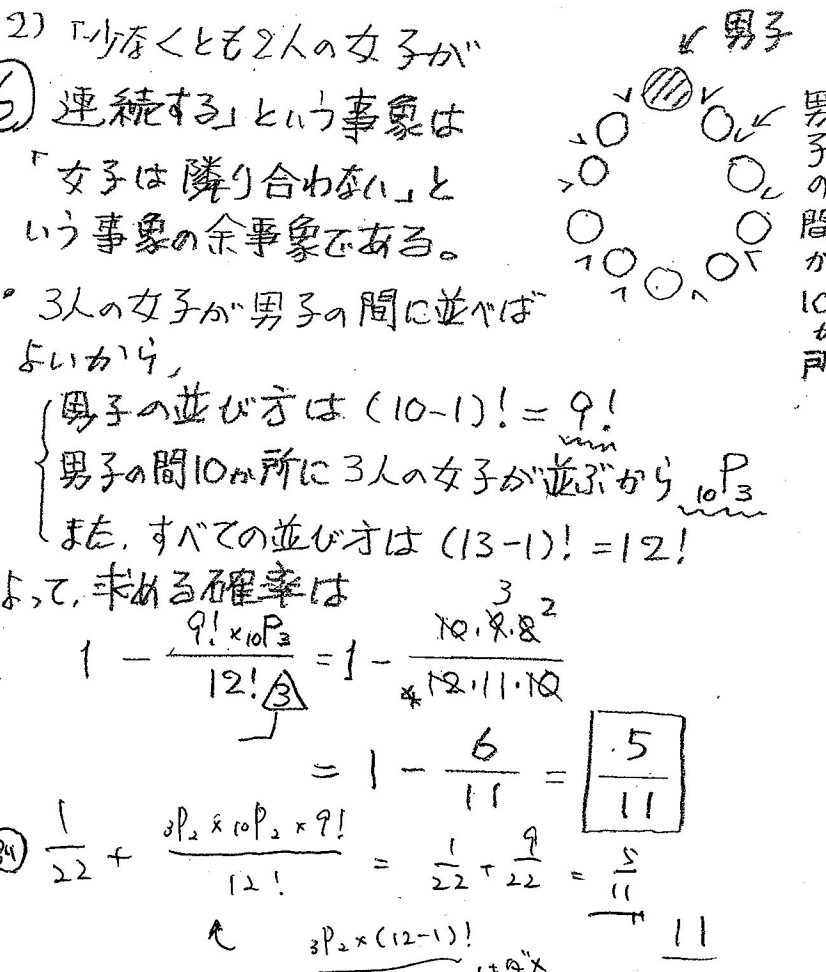 2) 「少なくとも2人の女子が
連続する」という事象は
「女子は隣り合わない」と
いう事象の余事象である。
男子
男子の間が10か所
• 3人の女子が男子の間に並べば
よいから,
男子の並び方は (10-1)! = 9!
男子の間10か所に3人の女子が並ぶから 10P3
また, すべての並び方は (13-1)! = 12!
よって, 求める確率は
1 - 9! × 10P3 / 12! ③ = 1 - 10・9・8 / 12・11・10
3 2
4
= 1 - 6/11 = 5/11
別 1/22 + 3P2 × 10P2 × 9! / 12! = 1/22 + 9/22 = 5/11
3P2 × (12-1)!
11